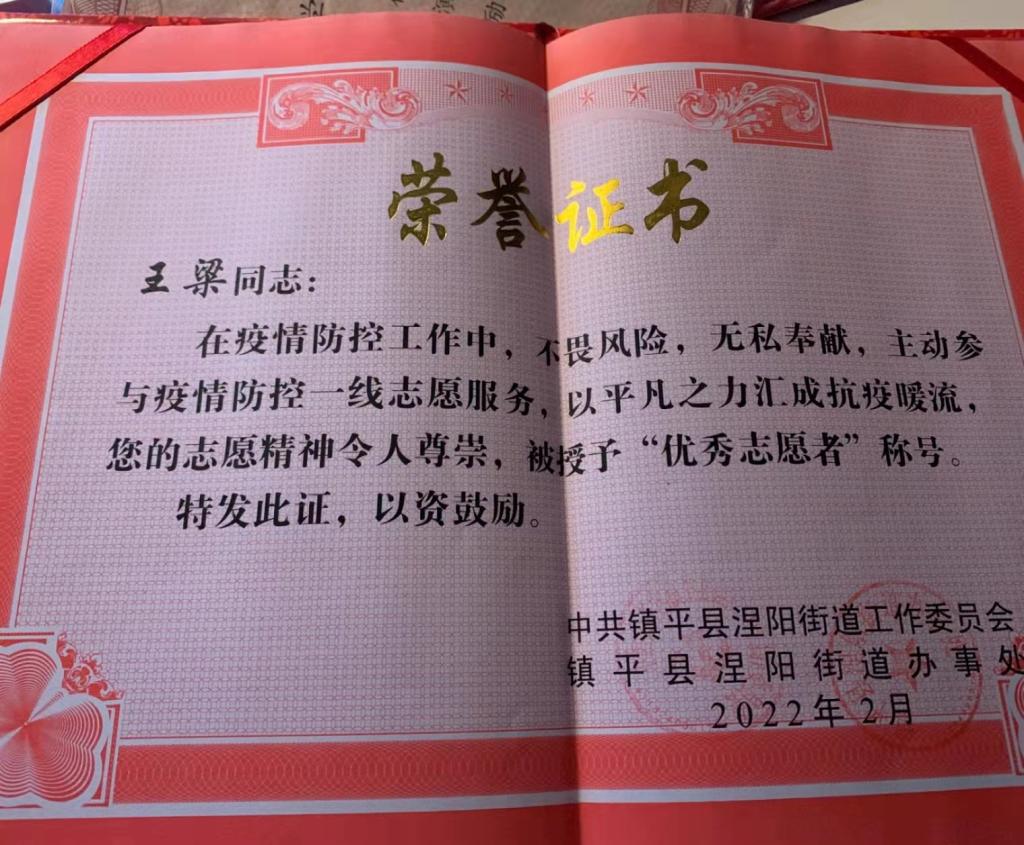 荣誉证书
王梁同志：
在疫情防控工作中，不畏风险，无私奉献，主动参
与疫情防控一线志愿服务，以平凡之力汇成抗疫暖流，
您的志愿精神令人尊崇，被授予“优秀志愿者”称号。
特发此证，以资鼓励。
中共镇平县涅阳街道工作委员会
镇平县涅阳街道办事处
2022年2月